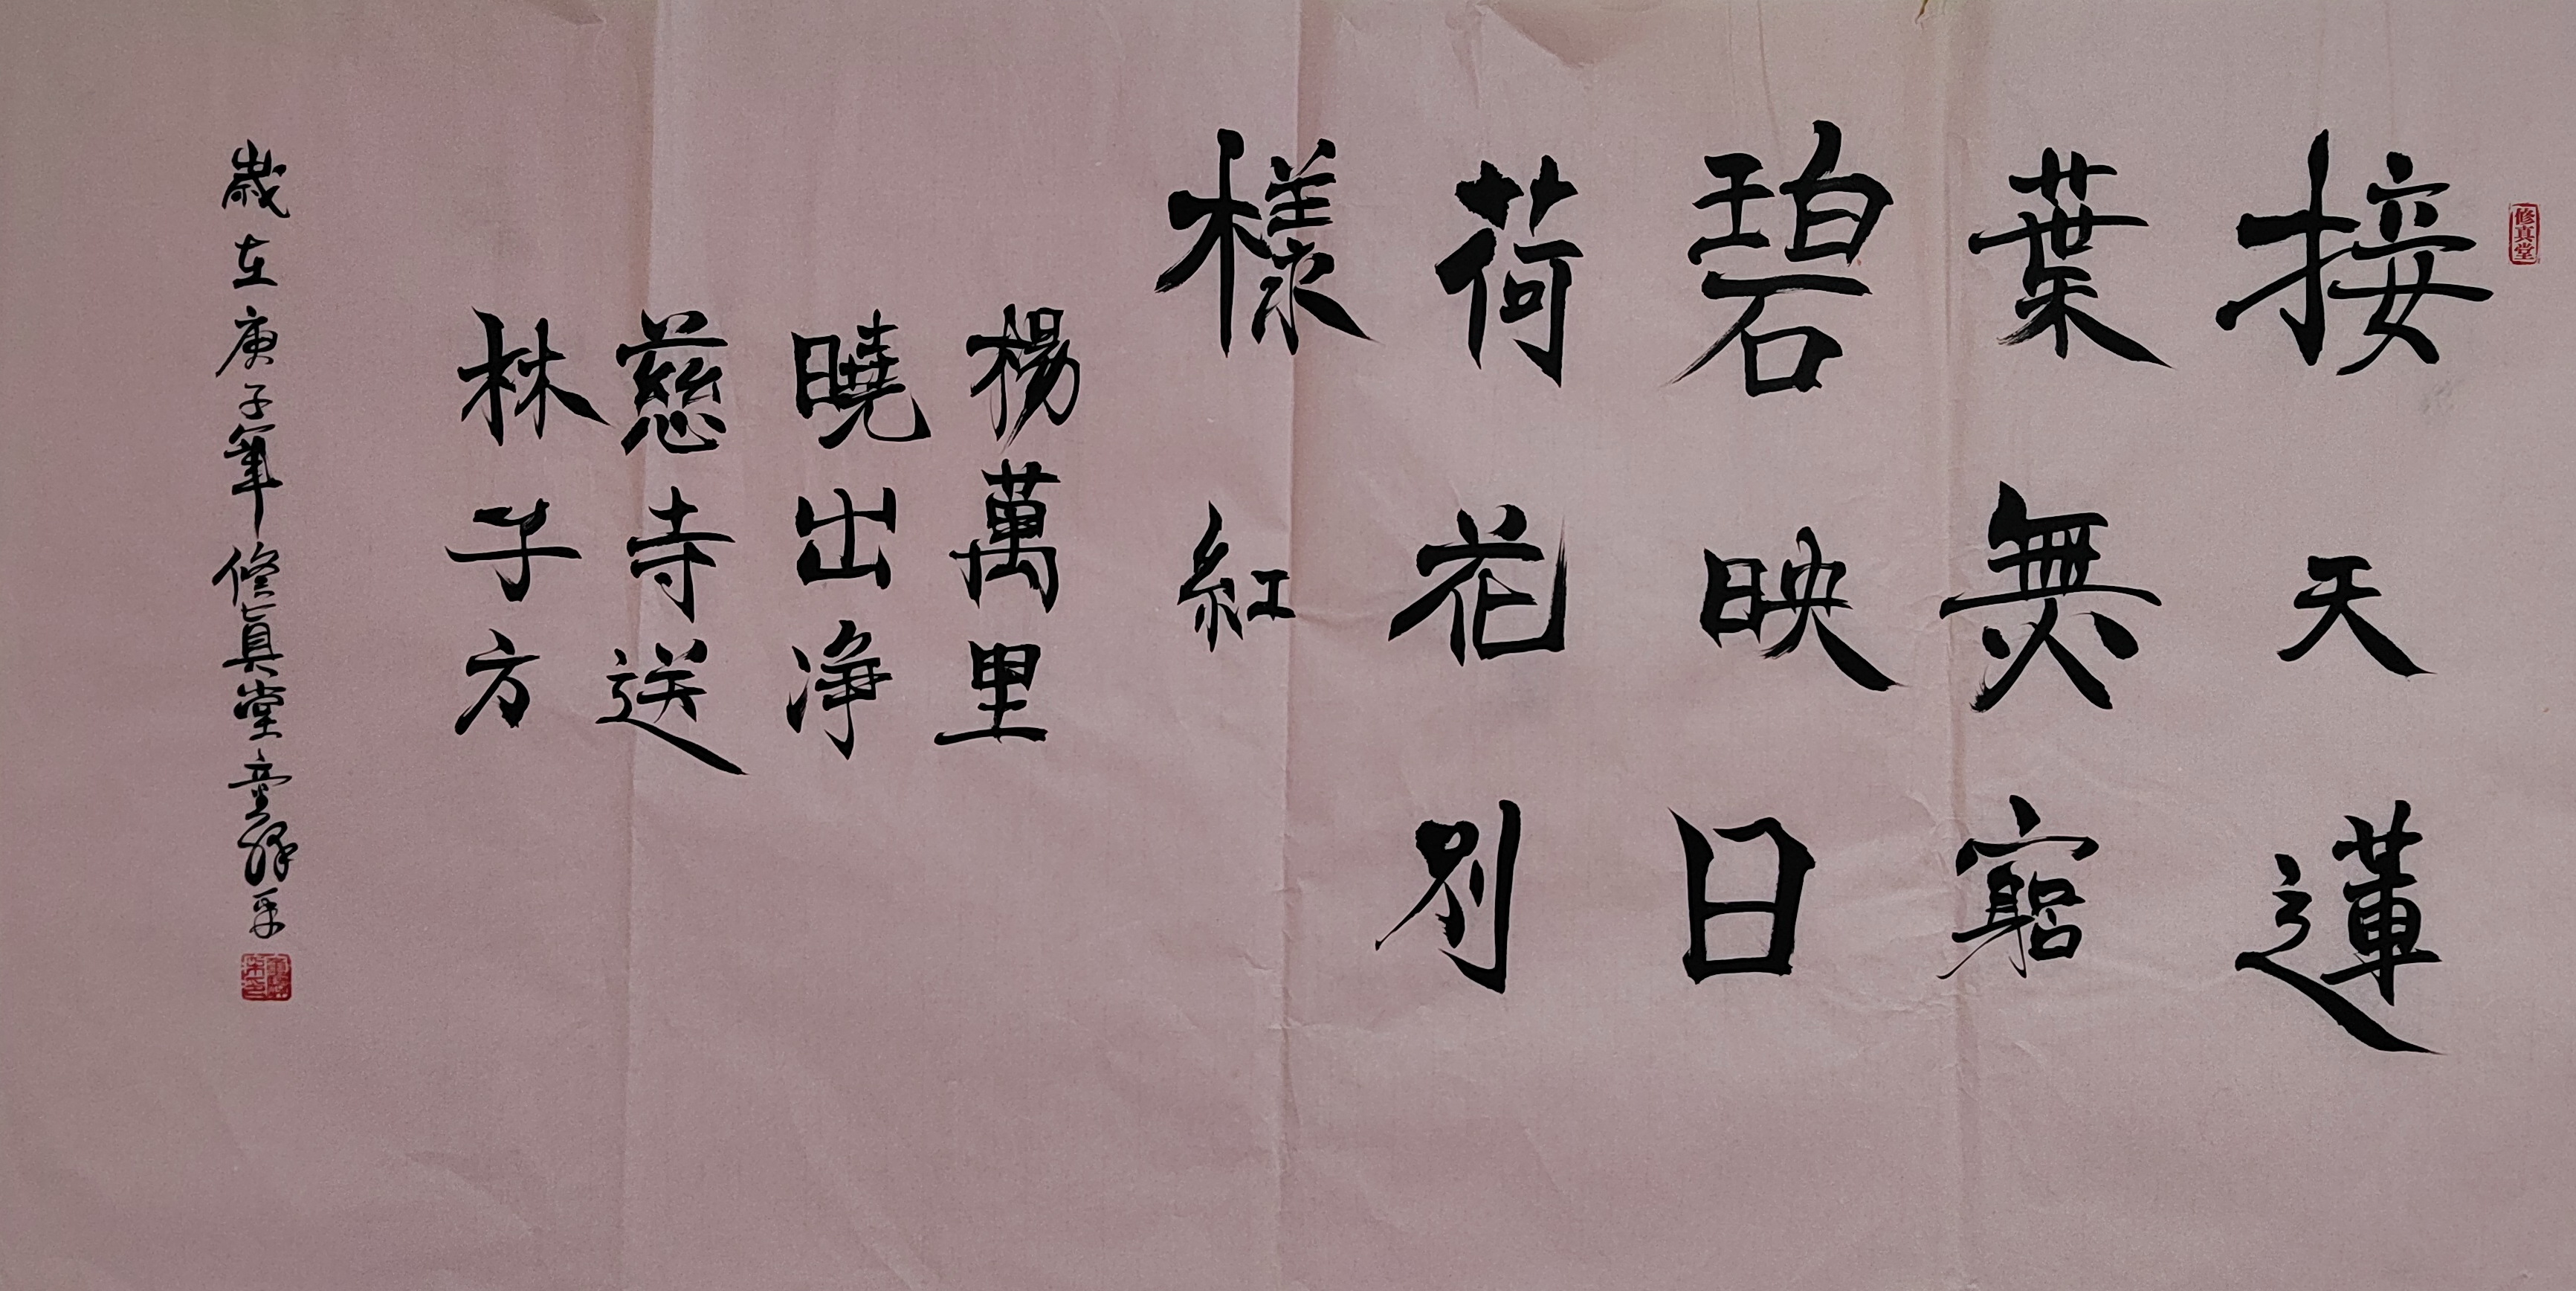 修真堂
接天蓮
葉無窮
碧映日
荷花別
樣紅
楊萬里
曉出净
慈寺送
林子方
歲在庚子筆修真堂童